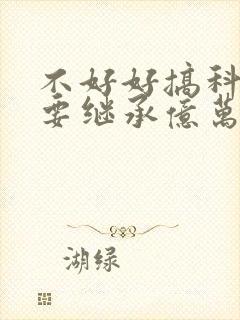 不好好搞科
要继承億萬
湖绿